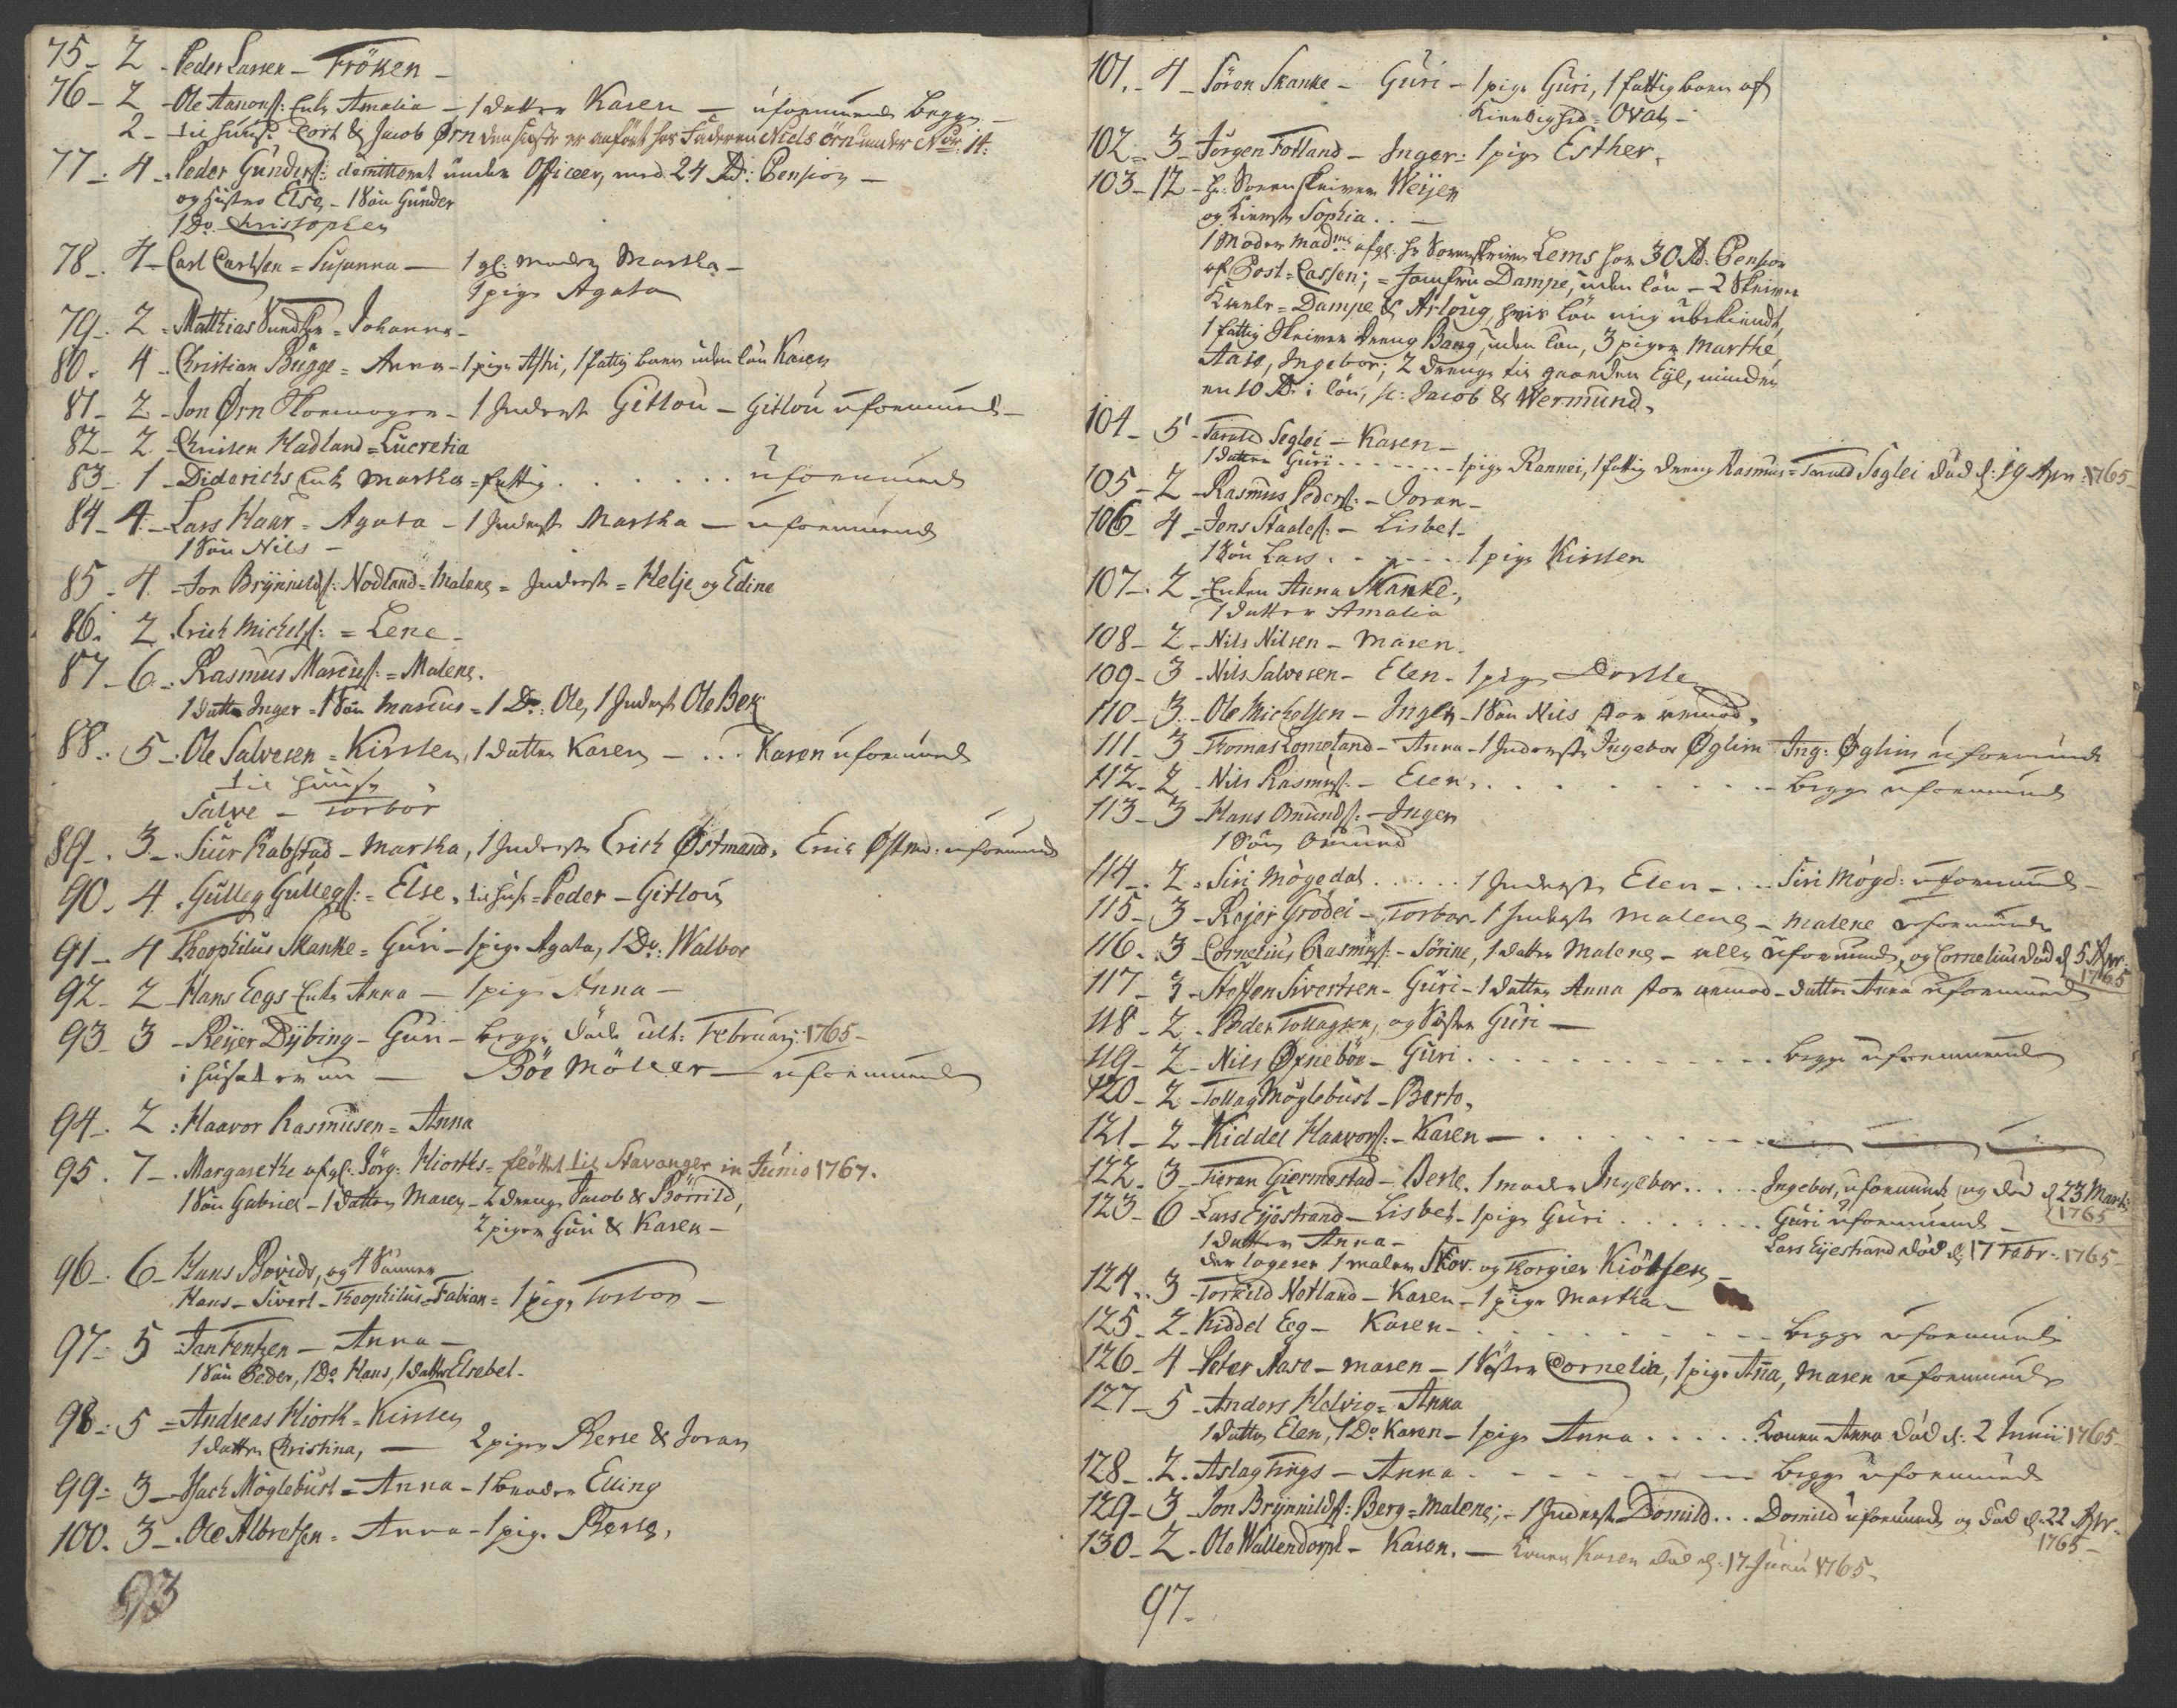 75 - 2 - Peder Larsen - Fröken -
76 - 2 - Ole Aanons: Enke Amalia - 1 datter Karen - uformuende begge -
2 - til huuse Cort & Jacob Ørn den sidste er anfört hos Faderen Niels örn under No: 14:
77 - 4 - Peder Gunders: dimitteret under Officeer, med 24 Rd: Pension -
og Hustroe Else, - 1 Sön Gunder
1 Do Christopher
78 - 4 - Carl Carlsen = Susanna - 1 gl: moder Martha -
1 pige Agata
79 - 2 - Matthias Sundby = Johanna -
80 - 4 - Christian Bugge = Anna - 1 pige Astri, 1 fattig barn uden lön Karen
81 - 2 - Jon Ørn - 1 Inderst Gitlou - Gitlou uformuende -
82 - 2 - Christen Hadland = Lucretia
83 - 1 - Diderichs Enke Martha = fattig . . . . . . . uformuende
84 - 4 - Lars Haar = Agata - 1 Inderst Martha - uformuende
1 Sön Nils -
85 - 4 - Jon Brynnilds: Nodland = Malene = Inderste = Helje og Edine
86 - 2 - Erich Michels: = Lene -
87 - 6 - Rasmus Marcus: = Malene.
1 datter Inger = 1 Sön Marcus = 1 Do: Ole, 1 Inderst Ole Bek
88 - 5 - Ole Salvesen = Kirsten, 1 datter Karen - . . . Karen uformuende
til huuse
Salve - Torbor
89 - 3 - Siur Rabstad - Martha, 1 Inderste Erich Østmand, Erich Østm: uformuende
90 - 4 - Gulleg Gullegs: = Else, til huse = Peder - Gitlou
91 - 4 Theophilus Skanke = Guri - 1 pige Agata, 1 Do: Walbor
92 - 2 - Hans Eegs Enke Anna - 1 pige Anna -
93 - 3 - Reyer Dybing - Guri - begge döde ult: February 1765 -
i huset er nu - Böe Möller - uformuende
94 - 2 : Haavor Rasmusen = Anna
95 - 7 - Margarethe afgl: Jörg: Hiorths = flöttet til Stavanger in Junio 1767.
1 Sön Gabriel - 1 datter Maren - 2 drenge Jacob & Börrild,
2 piger Guri & Karen -
96 - 6 - Hans Bovids, og 4 Sönner
Hans - Sivert - Theophilus - Fabian = 1 pige Torbor -
97 - 5 Jan Fentzen - Anna -
1 Sön Peder, 1 Do Hans, 1 datter Elsebet -
98 - 5 = Andreas Hiorth = Kirsten
1 datter Christina, - 2 piger Berte & Joran
99 - 3 - Isach Möglebust = Anna - 1 broder Elling
100 - 3 - Ole Albretsen = Anna - 1 pige Berte,
93
101 - 4 - Sören Skanke - Guri - 1 pige Guri, 1 fattig barn af
Oval -
102 - 3 - Jörgen Fotland - Inger = 1 pige Esther,
103 - 12 - Hr: Sorenskriver Weyer
og Kiereste Sophia . . -
1 Moder Madme afgl: Hr Sorenskriver Lems har 30 Rd: Pension
af Post = Cassen; = Jomfru Dampe, uden lön - 2 Skriver
Karle = Dampe & Arlouig, hvis lön mig ubekiendt,
1 fattig Skriver dreng Bang, uden lön, 3 piger Marthe,
Aase, Ingebor; 2 drenge til gaarden Eye, mindre
en 10 Rd: i lön, sc: Jacob & Wermund,
104 - 5 - Tarald Seglei - Karen -
1 datter Guri . . . . . . . . 1 pige Rannei, 1 fattig dreng Rasmus = Tarald Seglei död d: 19 Apr: 1765 -
105 - 2 - Rasmus Peders: - Joran -
106 - 4 - Jens Staales: - Lisbet -
1 Sön Lars . . . . . . 1 pige Kirsten
107 - 2 - Enken Anna Skanke,
1 datter Amalia
108 - 2 - Nils Nilsen - Maren -
109 - 3 - Nils Salvesen - Elen - 1 pige Dorthe
110 - 3 - Ole Michelsen - Inger - 1 Sön Nils
111 - 3 - Thomas Lomeland - Anna - 1 Inderste Ingebor Øglim Ing: Øglim uformuende
112 - 2 - Nils Rasmus: - Elen, . . . . . . . . . . - begge uformuende
113 - 3 - Hans Omunds: - Inger
1 Sön Omund
114 - 2 - Siri Mögedal . . . . . . 1 Inderste Elen - . . . Siri Mögd: uformuende -
115 - 3 - Rejer Grödei - Torbor - 1 Inderste Malene - Malene uformuende
116 - 3 - Cornelius Rasmus: - Sörine, 1 datter Malene - alle uformuende, og Cornelius död d 5 Apr:
1765
117 - 3 - Steffen Sivertsen - Guri - 1 datter Anna - datter Anna uformuende
118 - 2 - Peder Tollagsen, og Söster Guri -
119 - 2 - Nils Ørneböe - Guri . . . . . . . . . . . . begge uformuende
120 - 2 - Tollag Möglebust - Berte,
121 - 2 - Kiddel Haavors: - Karen - . . . . . . .
122 - 3 - Tieran Giermestad - Berte, 1 moder Ingebor . . . . . Ingebor, uformuende og död d 23 Marti
1765
123 - 6 - Lars Eyestrand - Lisbet - 1 pige Guri . . . . . . . Guri uformuende -
1 datter Anna - Lars Eyestrand död d: 17 Febr: 1765 -
der logerer 1 maler Skov: og Thorgier Kiötsen -
124 - 3 - Torkild Netland - Karen - 1 pige Martha -
125 - 2 - Kiddel Eeg - Karen - . . . . . . . . - begge uformuende
126 - 4 - Peter Aase - Maren - 1 Söster Cornelia, 1 pige Anna, Maren uformuende
127 - 5 - Anders Helvig = Anna
1 datter Elen, 1 Do Karen - 1 pige Anna . . . . . Konen Anna död d: 2 Junii 1765 -
128 - 2 - Aslag Tings - Anna . - - - - - - begge uformuende
129 - 3 - Jon Brynnilds: Berg = Malene; - 1 Inderst Domild . . . Domild uformuende og död d: 22 Apr:
1765 -
130 - 2 - Ole Wallendorph - Karen, - Konen Karen död d: 17 Junii 1765 -
97 -